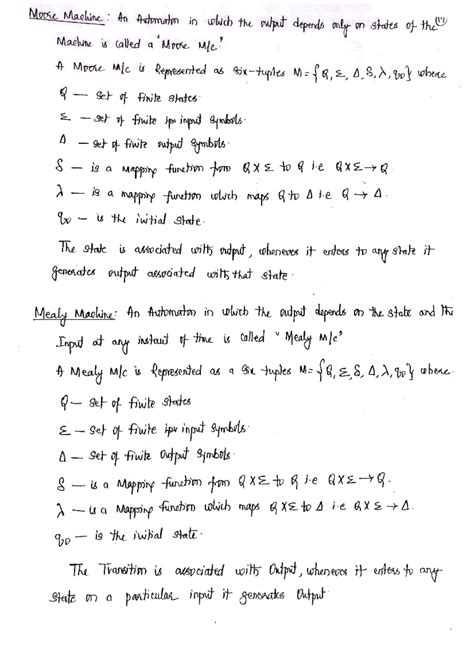 Moore Machine : An Automaton in which the output depends only on states of the
Machine is called a 'Moore M/c'
A Moore M/c is Represented as six-tuples M = {Q, Σ, Δ, δ, λ, q0} where
Q — set of finite states.
Σ — set of finite ipv input symbols.
Δ — set of finite output symbols.
δ — is a Mapping function from Q X Σ to Q i.e Q X Σ → Q.
λ — is a mapping function which maps Q to Δ i.e Q → Δ.
q0 — is the initial state.
The state is associated with output, whenever it enters to any state it
generates output associated with that state.
Mealy Machine : An Automaton in which the output depends on the state and the
Input at any instant of time is called "Mealy M/c"
A Mealy M/c is Represented as a six tuples M = {Q, Σ, δ, Δ, λ, q0} where
Q — set of finite states
Σ — set of finite ipv input symbols.
Δ — set of finite Output symbols
δ — is a Mapping function from Q X Σ to Q i.e Q X Σ → Q.
λ — is a Mapping function which maps Q X Σ to Δ i.e Q X Σ → Δ.
q0 — is the initial state.
The Transition is associated with Output, whenever it enters to any
state on a particular input it generates Output